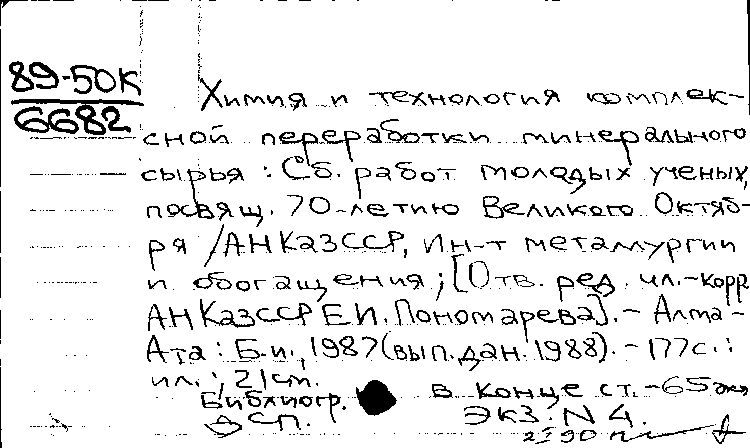 89-50К
6682
Химия и технология комплек-
сной переработки минерального
сырья : Сб. работ молодых ученых,
посвящ. 70-летию Великого Октяб-
ря / АН КазССР, Ин-т металлургии
и обогащения ; [Отв. ред. чл.-корр.
АН КазССР Е.И. Пономарева]. - Алма-
Ата : Б.и., 1987 (вып. дан. 1988). - 177с. :
ил. ; 21см.
Библиогр. в конце ст. - 65 экз
СП. ЭКЗ. N 4.